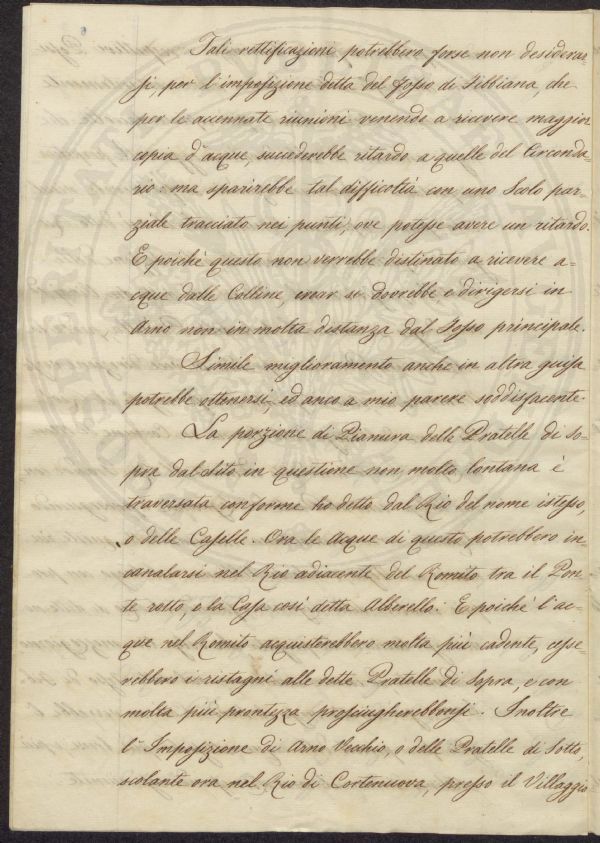 Tali rettificazioni potrebbero forse non desiderar-
si, per l'imposizione detta del Fosso di Fibbiana, che
per le accennate riunioni venendo a ricevere maggior
copia d'acque, succederebbe ritardo a quelle del Circonda-
rio: ma sparirebbe tal difficoltà con uno Scolo par-
ziale tracciato nei punti, ove potesse avere un ritardo.
E poichè questo non verrebbe distinato a ricevere a-
cque dalle Colline, crear si dovrebbe e dirigersi in
Arno non in molta distanza dal Fosso principale.
Simile miglioramento anche in altra guisa
potrebbe ottenersi, ed anco a mio parere soddisfacente.
La porzione di Pianura delle Pratelle di So-
pra dal Sito in questione non molto lontana è
traversata conforme ho detto dal Rio del nome istesso,
o delle Caselle. Ora le Acque di questo potrebbero in-
canalarsi nel Rio adiacente del Romito tra il Pon-
te rotto, e la Casa così detta Alberello. E poichè l'ac-
que nel Romito acquisterebbero molta più cadente, cesse-
rebbero i ristagni alle dette Pratelle di Sopra, e con
molta più prontezza prosciugherebbonsi. Inoltre
l'Imposizione di Arno Vecchio, o delle Pratelle di Sotto,
scolante ora nel Rio di Cortenuova, presso il Villaggio